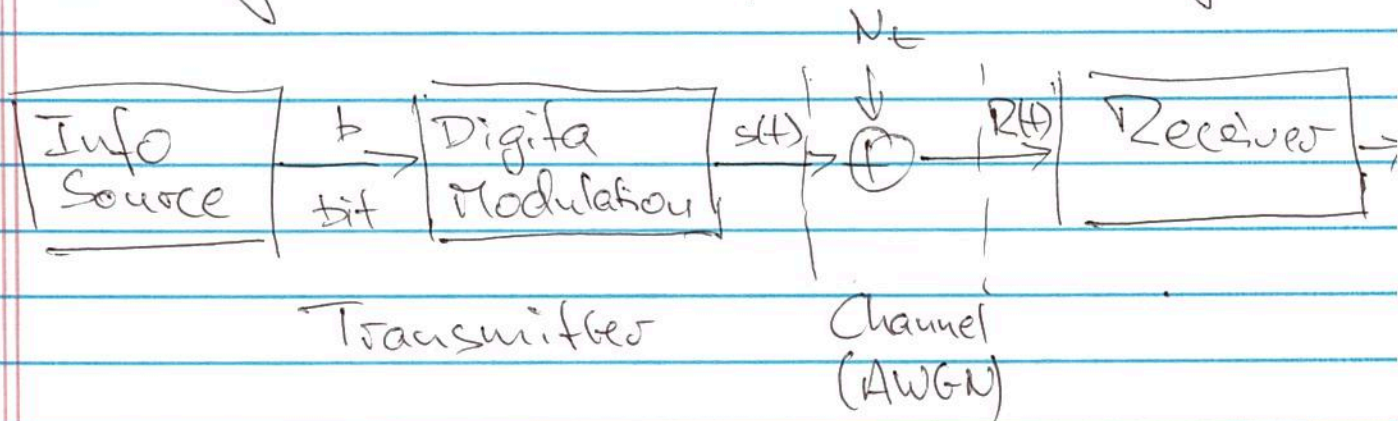 N_t
Info Source
b
bit
Digita Modulation
s(t)
R(t)
Receiver
Transmitter
Channel
(AWGN)